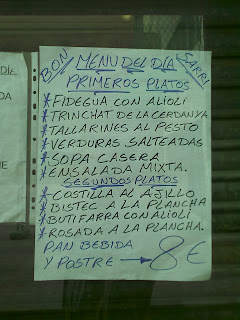 BON MENU DEL DÍA SARRI
PRIMEROS PLATOS
*FIDEGUA CON ALIOLI
*TRINCHAT DE LA CERDANYA
*TALLARINES AL PESTO
*VERDURAS SALTEADAS
*SOPA CASERA
*ENSALADA MIXTA.
SEGUNDOS PLATOS
*COSTILLA AL AJILLO
*BISTEC A LA PLANCHA
*BUTIFARRA CON ALIOLI
*ROSADA A LA PLANCHA.
PAN BEBIDA
Y POSTRE → 8€
DÍA